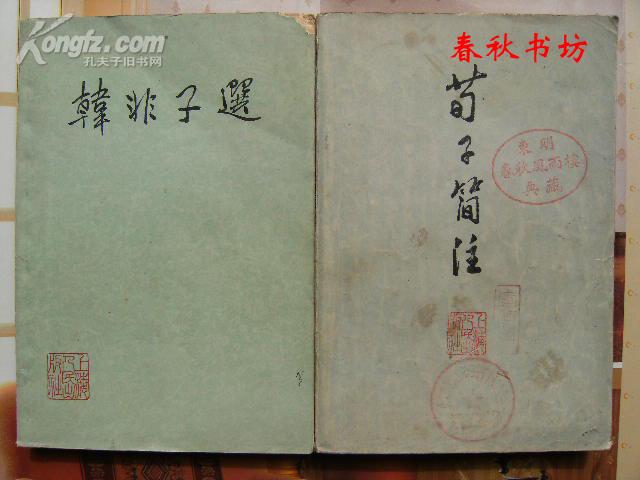 Kongfz.com
孔夫子旧书网
韓非子選
上海
人民出
版社
春秋书坊
荀子简注
東明
春秋風雨樓
典藏
上海
人民出
版社